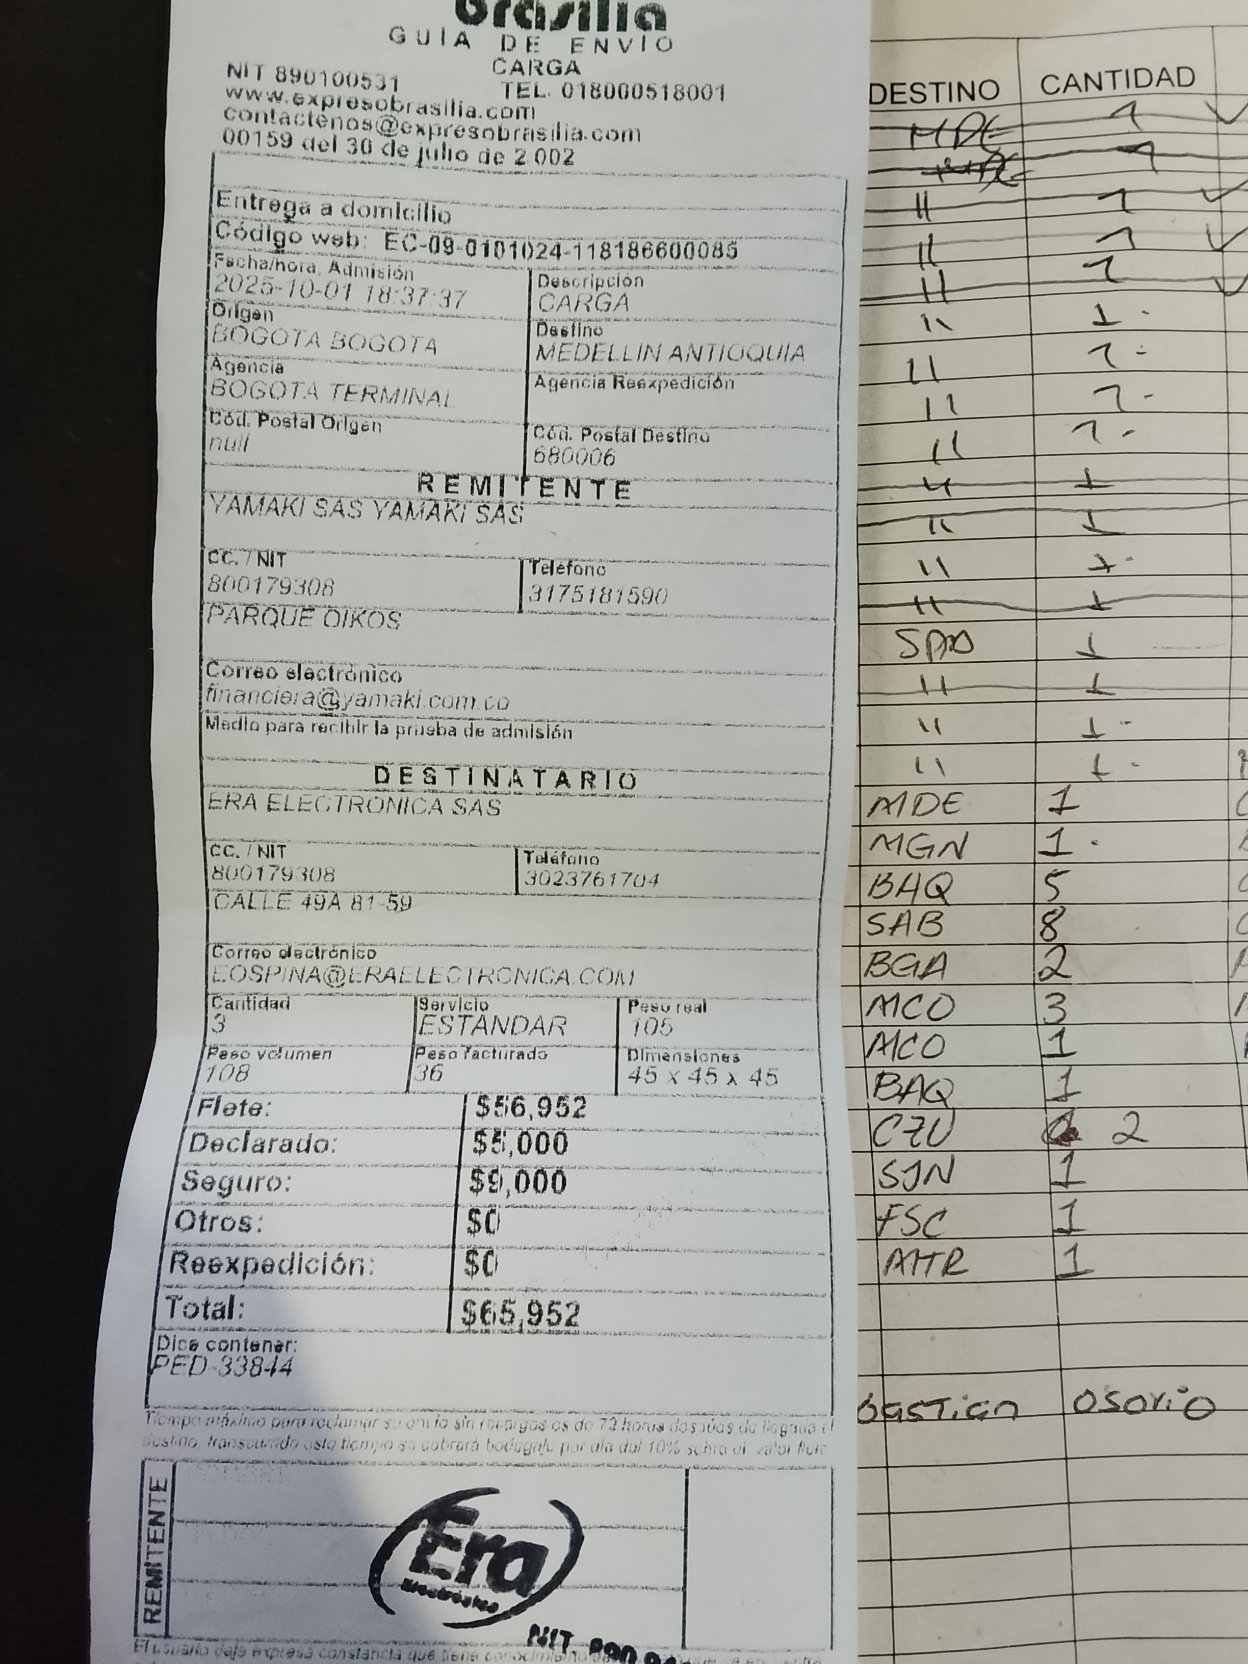 Brasilia
GUIA DE ENVIO
CARGA
NIT 890100531
TEL. 018000518001
www.expresobrasilia.com
contactenos@expresobrasilia.com
00159 del 30 de julio de 2.002
Entrega a domicilio
Código web: EC-09-0101024-118186600085
Fecha/hora, Admisión
2025-10-01 18:37:37
Descripción
CARGA
Origen
BOGOTA BOGOTA
Destino
MEDELLIN ANTIOQUIA
Agencia
BOGOTA TERMINAL
Agencia Reexpedición
Cód. Postal Origen
null
Cód. Postal Destino
680006
REMITENTE
YAMAKI SAS YAMAKI SAS
CC. / NIT
800179308
Teléfono
3175181590
PARQUE OIKOS
Correo electrónico
financiera@yamaki.com.co
Medio para recibir la prueba de admisión
DESTINATARIO
ERA ELECTRONICA SAS
CC. / NIT
800179308
Teléfono
3023761704
CALLE 49A 81-59
Correo electrónico
EOSPINA@ERAELECTRONICA.COM
Cantidad
3
Servicio
ESTANDAR
Peso real
105
Peso volumen
108
Peso facturado
36
Dimensiones
45 x 45 x 45
Flete: $56,952
Declarado: $5,000
Seguro: $9,000
Otros: $0
Reexpedición: $0
Total: $65,952
Dice contener:
PED-33844
Tiempo máximo para reclamar su envío sin recargos es de 72 horas después de llegada el
destino, transcurrido este tiempo se cobrará bodegaje por día del 10% sobre el valor flete
REMITENTE
Era
Electrónica
NIT
El usuario deja expresa constancia que tiene conocimiento
DESTINO CANTIDAD
MDE 1
1
" 1
" 1
" 1
" 1
" 1
" 1
" 1
" 1
" 1
" 1
" 1
1
" 1
" 1
" 1
MDE 1
MGN 1
BAQ 5
SAB 8
BGA 2
MCO 3
MCO 1
BAQ 1
CZU 2
SJN 1
FSC 1
MTR 1
bastian Osorio